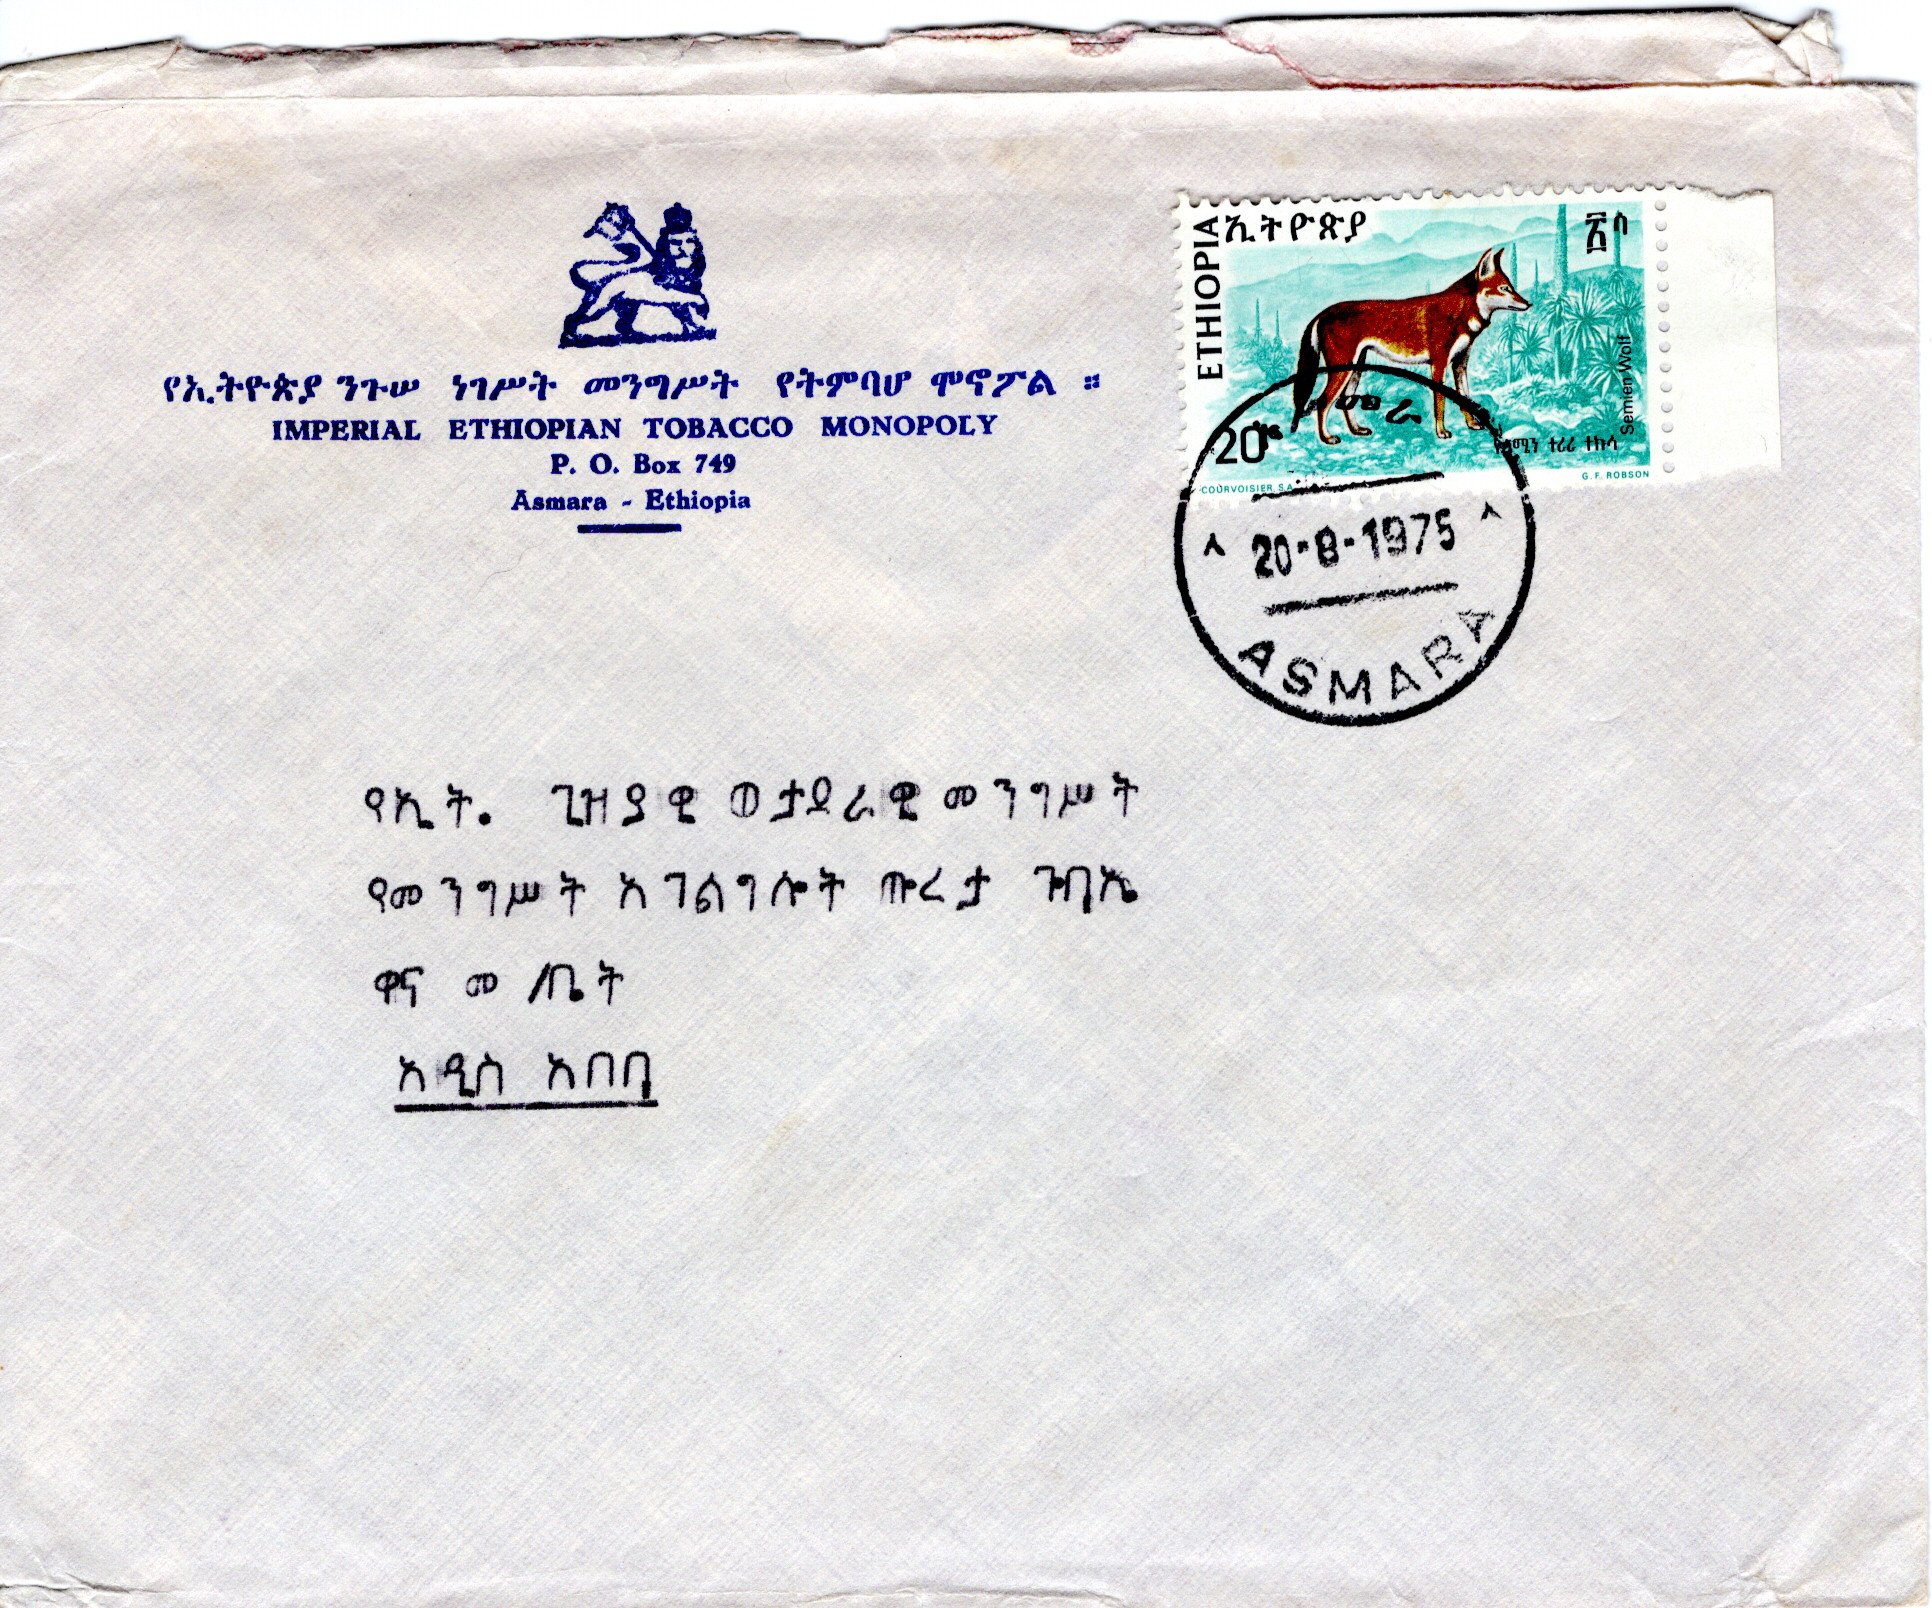 የኢትዮጵያ ንጉሠ ነገሥት መንግሥት የትምባሆ ሞኖፖል ።
IMPERIAL ETHIOPIAN TOBACCO MONOPOLY
P. O. Box 749
Asmara - Ethiopia
ETHIOPIA
ኢትዮጵያ
፳ ሳ
Semien Wolf
20
ተኩላ
COURVOISIER S.A.
G. F. ROBSON
20-8-1975
ASMARA
የኢት. ጊዝያዊ ወታደራዊ መንግሥት
የመንግሥት አገልግሎት ጡረታ ጉባኤ
ዋና መ/ቤት
አዲስ አበባ